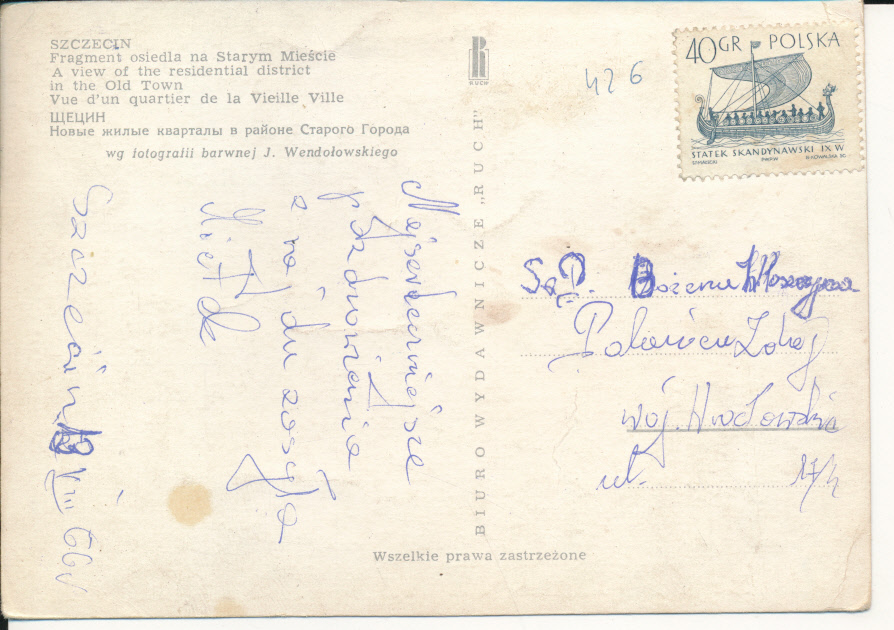 SZCZECIN
Fragment osiedla na Starym Mieście
A view of the residential district
in the Old Town
Vue d'un quartier de la Vieille Ville
ЩЕЦИН
Новые жилые кварталы в районе Старого Города
wg fotografii barwnej J. Wendołowskiego
RUCH
BIURO WYDAWNICZE „RUCH"
Wszelkie prawa zastrzeżone
426
40GR POLSKA
STATEK SKANDYNAWSKI IX W
Najserdeczniejsze
pozdrowienia
z nad
Szczecin
VIII
Bożena
Zdrój
woj. Wrocławskie
ul. 17/4